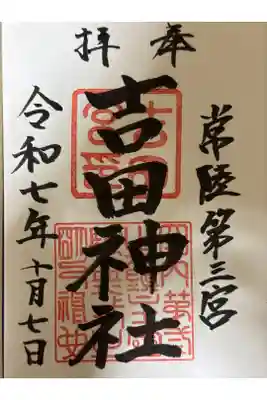 奉拝
常陸第三宮
吉田神社
令和七年十月七日